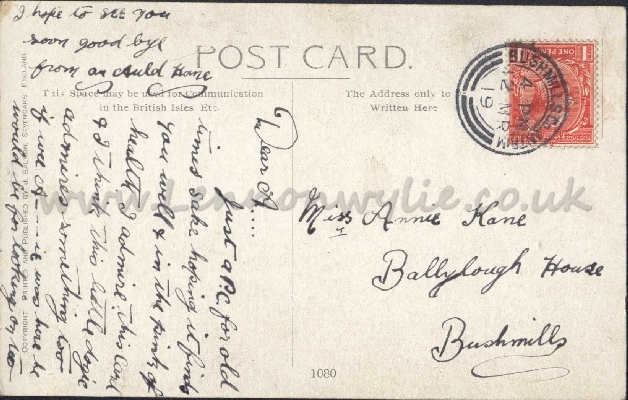 I hope to see you
soon good bye
from an auld Hane
POST CARD.
This Space may be used for Communication
in the British Isles Etc.
The Address only to
Written Here
Dear A....
Just a P.C. for old
times sake hoping it finds
you well & in the pink of
health I admire this Card
& I think this little dogie
admires something too
if wee A---ie was here he
would be for looking on too
Miss Annie Kane
Ballylough House
Bushmills
1080
BUSHMILLS CO. ANTRIM
4 PM
2 MR
19
ONE PENNY
1
COPYRIGHT PRINTED AND PUBLISHED BY J. SALMON, SEVENOAKS, ENGLAND.
www.Lennonwylie.co.uk